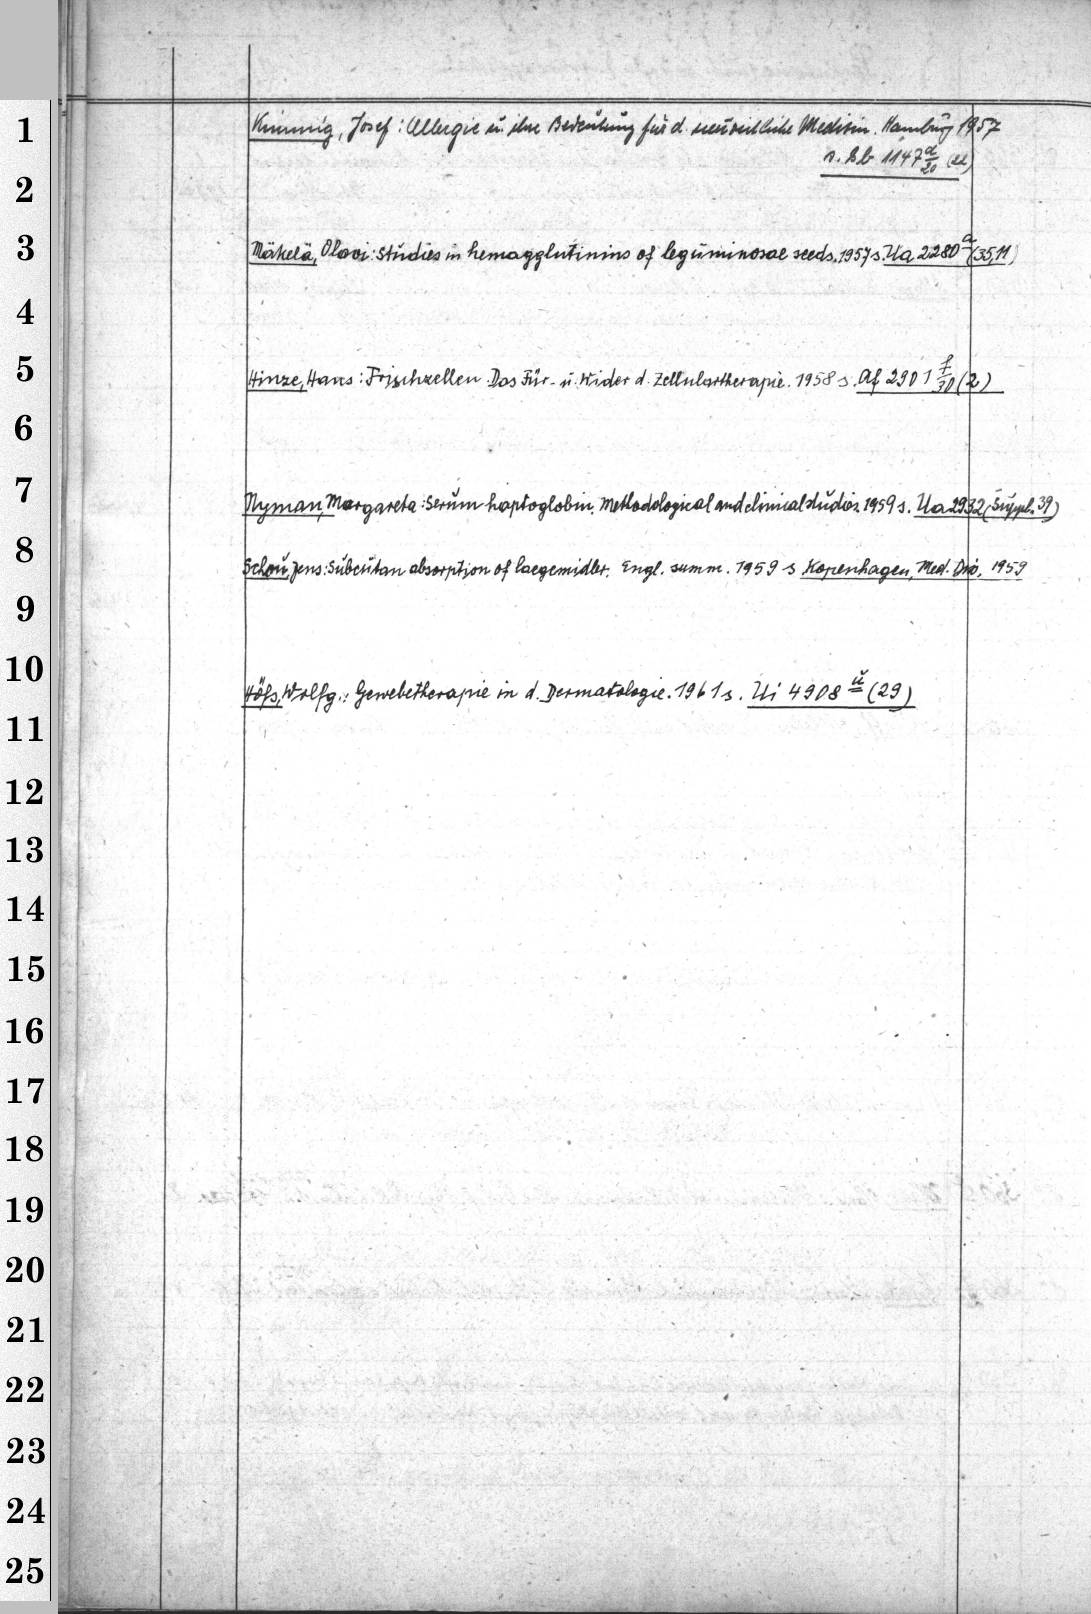 1
Kimmig, Josef: Allergie u. ihre Bedeutung für d. neuzeitliche Medizin. Hamburg 1957
2
s. Bb 1147 d/20 (22)
3
Mäkelä, Olavi: Studies in hemagglutinins of leguminosae seeds. 1957 s. Ua 2280 a (35,11)
4
5
Hinze, Hans: Frischzellen. Das Für- u. Wider d. Zellulartherapie. 1958 s. Af 2901 f/30 (2)
6
7
Nyman, Margareta: Serum haptoglobin. Methodological and clinical studies. 1959 s. Ua 2932 (Suppl. 39)
8
Schou, Jens: Subcutan absorption of laegemidler. Engl. summ. 1959 s Kopenhagen, Med. Diss. 1959
9
10
Höfs, Wolfg.: Gewebetherapie in d. Dermatologie. 1961 s. Ui 4908 u (29)
11
12
13
14
15
16
17
18
19
20
21
22
23
24
25